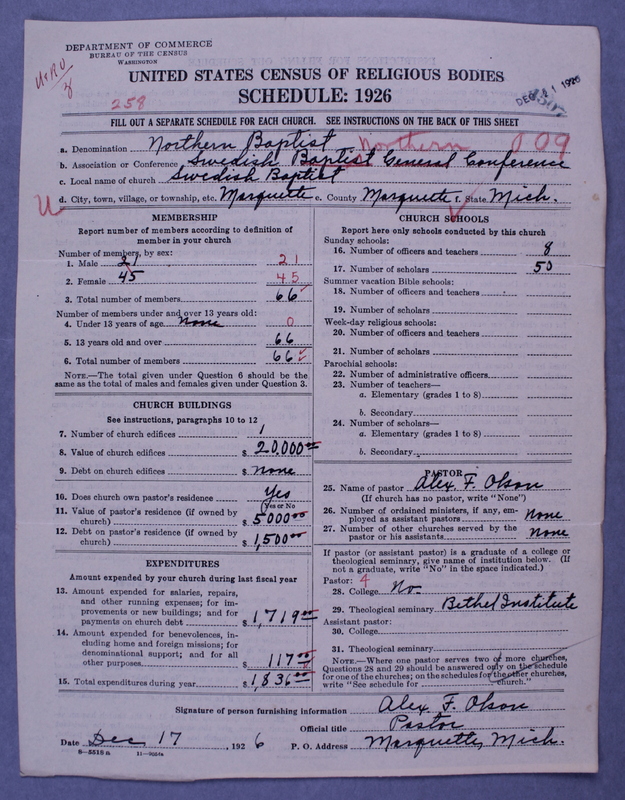 DEPARTMENT OF COMMERCE
BUREAU OF THE CENSUS
WASHINGTON
UNITED STATES CENSUS OF RELIGIOUS BODIES
258
SCHEDULE: 1926
FILL OUT A SEPARATE SCHEDULE FOR EACH CHURCH. SEE INSTRUCTIONS ON THE BACK OF THIS SHEET
a. Denomination Northern Baptist Northern 009
b. Association or Conference Swedish Baptist General Conference
c. Local name of church Swedish Baptist
d. City, town, village, or township, etc. Marquette e. County Marquette f. State Mich.
MEMBERSHIP
Report number of members according to definition of
member in your church
Number of members, by sex:
1. Male 21 21
2. Female 45 45
3. Total number of members 66
Number of members under and over 13 years old:
4. Under 13 years of age None 0
5. 13 years old and over 66
6. Total number of members 66
NOTE.—The total given under Question 6 should be the
same as the total of males and females given under Question 3.
CHURCH BUILDINGS
See instructions, paragraphs 10 to 12
7. Number of church edifices 1
8. Value of church edifices $ 20,000 00
9. Debt on church edifices $ None
10. Does church own pastor's residence Yes
(Yes or No)
11. Value of pastor's residence (if owned by
church) $ 5000 00
12. Debt on pastor's residence (if owned by
church) $ 1,500 00
EXPENDITURES
Amount expended by your church during last fiscal year
13. Amount expended for salaries, repairs,
and other running expenses; for im-
provements or new buildings; and for
payments on church debt $ 1,719 00
14. Amount expended for benevolences, in-
cluding home and foreign missions; for
denominational support; and for all
other purposes $ 117 00
15. Total expenditures during year $ 1,836 00
CHURCH SCHOOLS
Report here only schools conducted by this church
Sunday schools:
16. Number of officers and teachers 8
17. Number of scholars 50
Summer vacation Bible schools:
18. Number of officers and teachers
19. Number of scholars
Week-day religious schools:
20. Number of officers and teachers
21. Number of scholars
Parochial schools:
22. Number of administrative officers
23. Number of teachers—
a. Elementary (grades 1 to 8)
b. Secondary
24. Number of scholars—
a. Elementary (grades 1 to 8)
b. Secondary
PASTOR
25. Name of pastor Alex. F. Olson
(If church has no pastor, write "None")
26. Number of ordained ministers, if any, em-
ployed as assistant pastors None
27. Number of other churches served by the
pastor or his assistants None
If pastor (or assistant pastor) is a graduate of a college or
theological seminary, give name of institution below. (If
not a graduate, write "No" in the space indicated.)
Pastor: 4
28. College No
29. Theological seminary Bethel Institute
Assistant pastor:
30. College
31. Theological seminary
NOTE.—Where one pastor serves two or more churches,
Questions 28 and 29 should be answered only on the schedule
for one of the churches; on the schedules for the other churches,
write "See schedule for church."
Signature of person furnishing information Alex. F. Olson
Official title Pastor
Date Dec. 17, 1926 P. O. Address Marquette, Mich.
8—5518 a